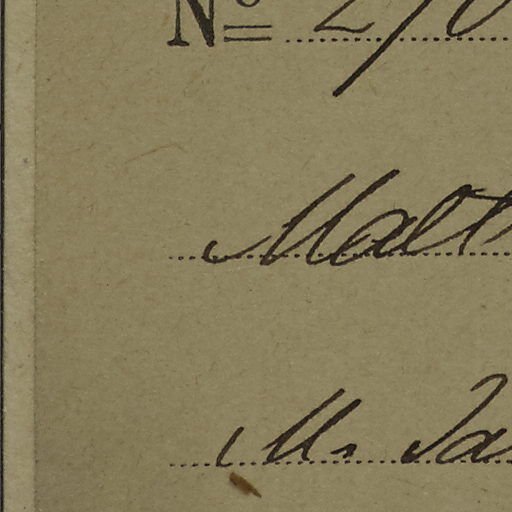 Nº
Malt
M. Ja